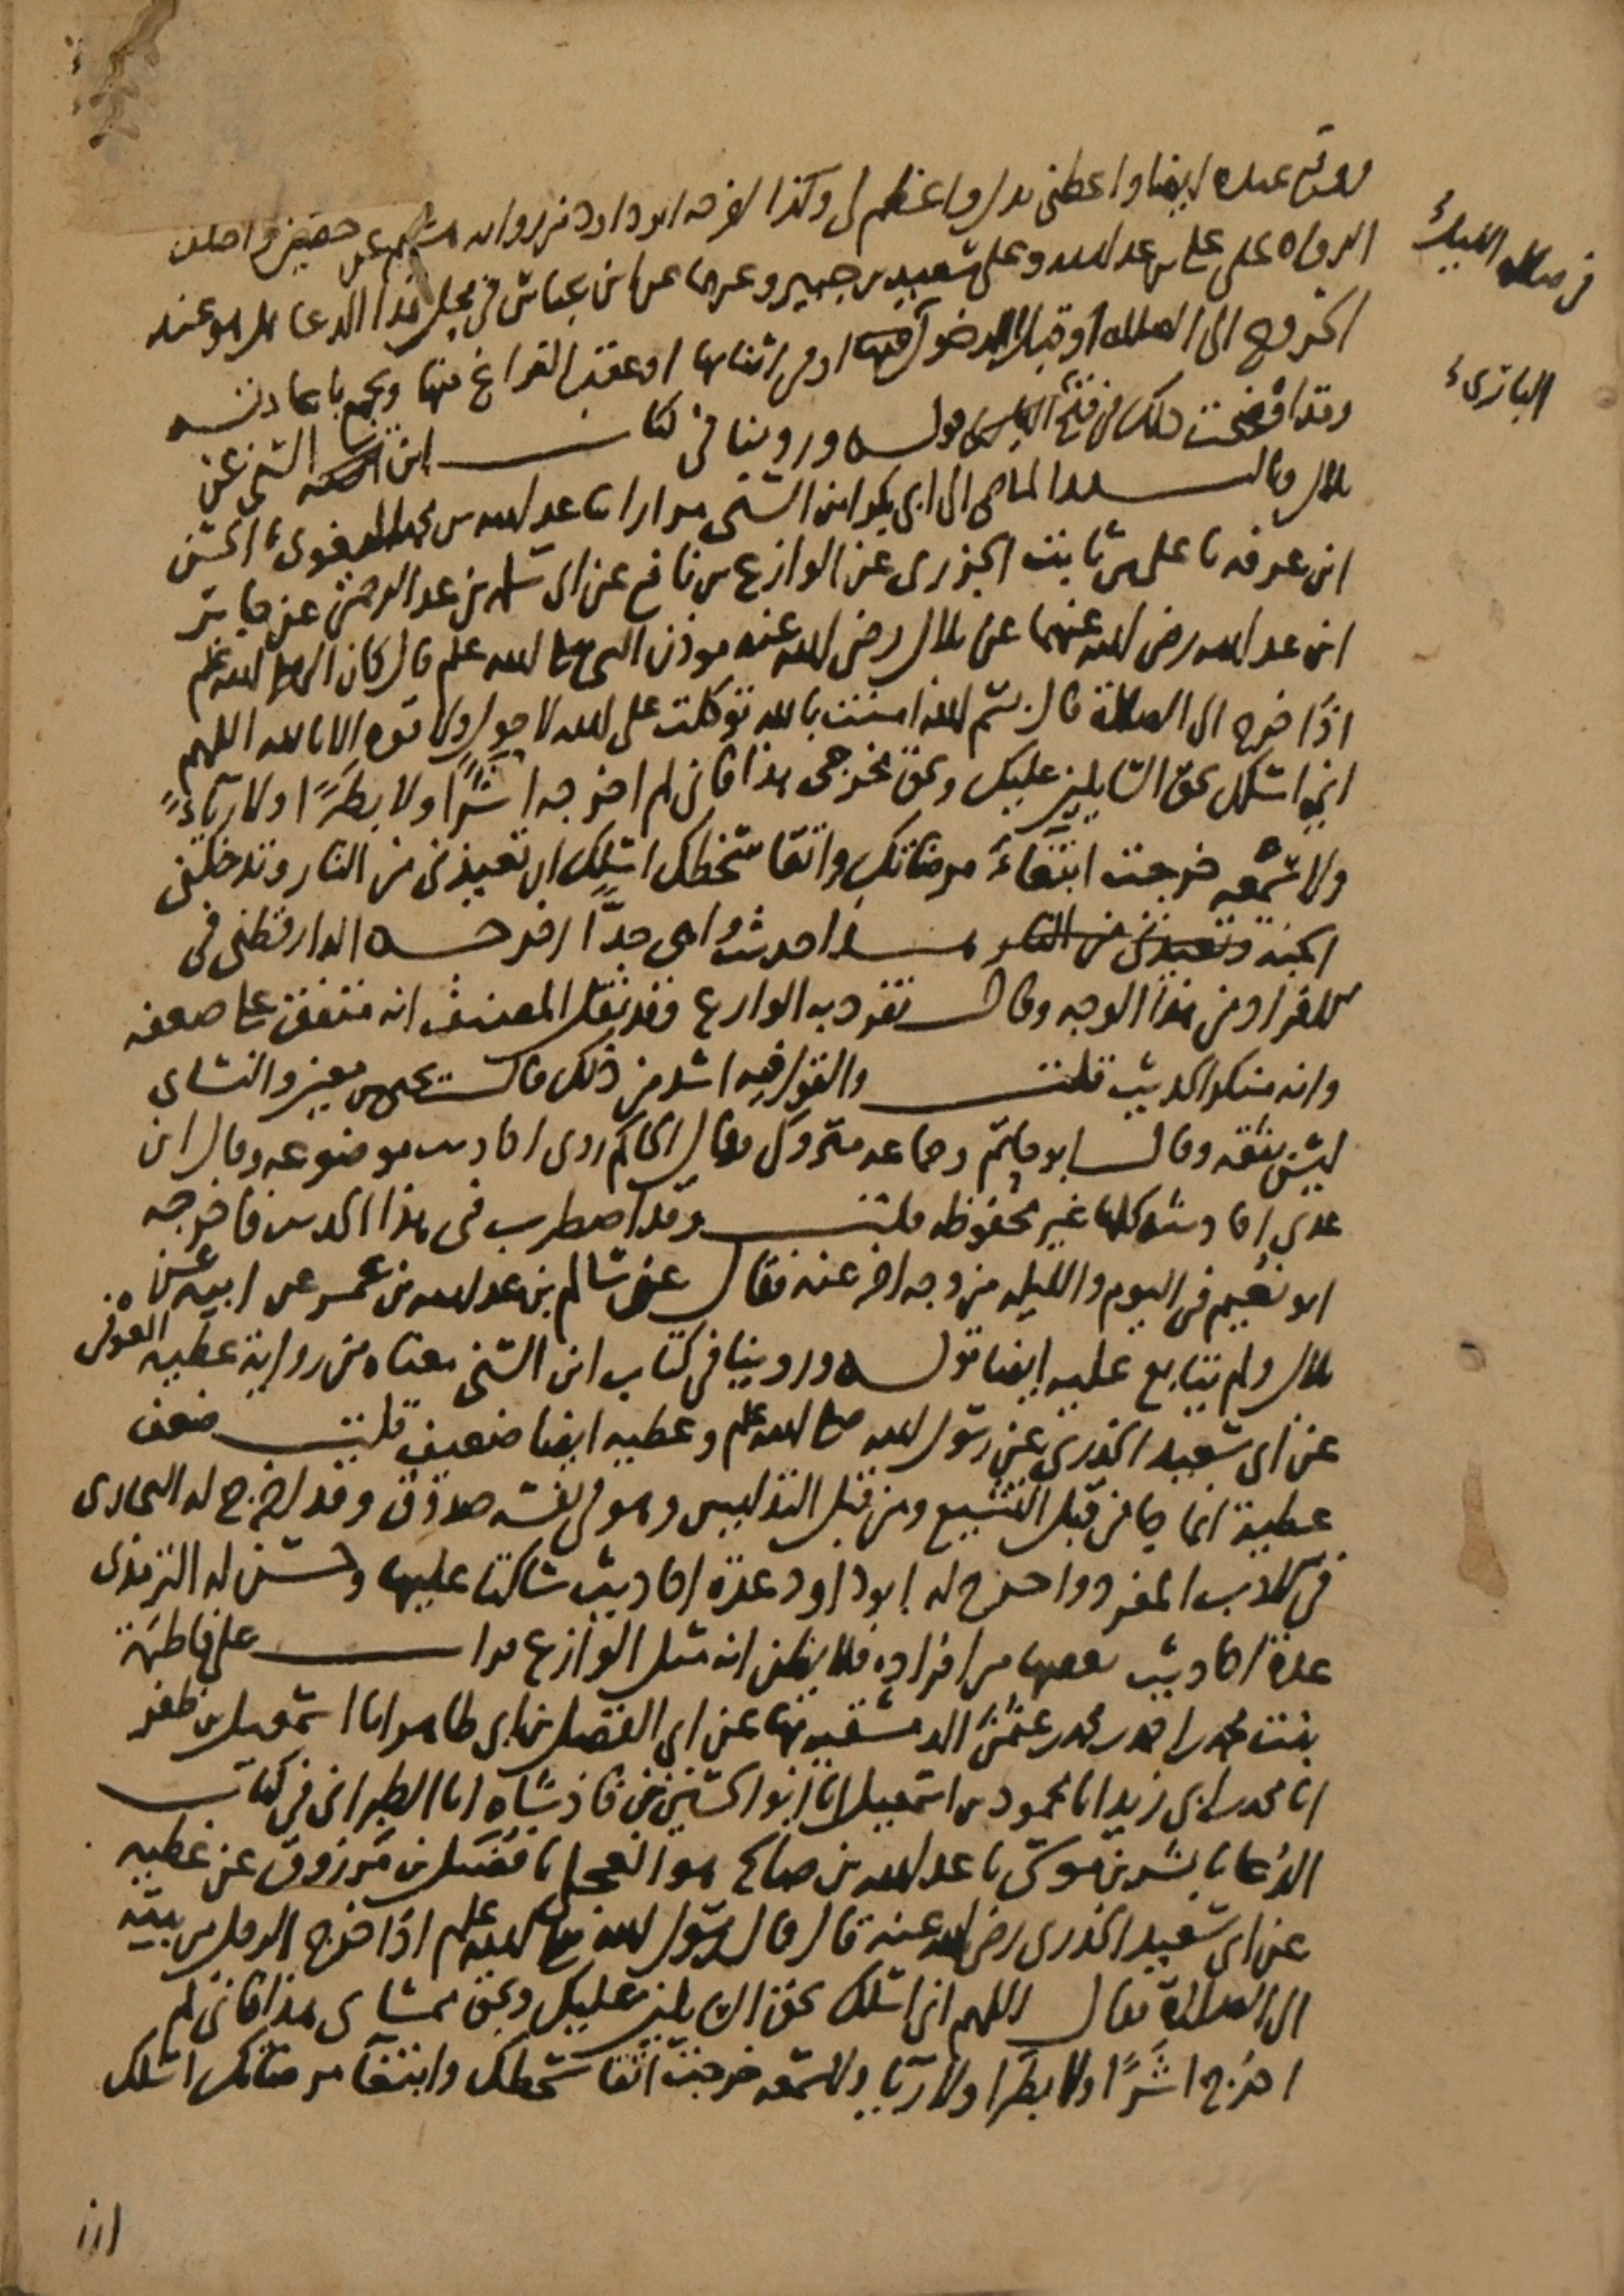 ووقع عنده ايضا واعطني بدل واعظم لي وكذا اخرجه ابو داود من رواية هشيم عن حصين واختلف
الرواة على علي بن عبد الله وعلى سعيد بن جبير وغيرهما عن ابن عباس في محل هذا الدعا هل هو عند
الخروج الى الصلاة او قبل الدخول فيها او في اثنائها او عقب الفراغ منها ويجمع باعادته
في صلاة الليل
وقد اوضحت ذلك في فتح الباري قوله وروينا في كتاب ابن السني عن
الباري
بلال وبالسند الماضي الى ابي بكر ابن السني مرارا نا عبد الله بن محمد البغوي نا الحسن
ابن عرفه نا علي بن ثابت الجزري عن الوازع بن نافع عن ابي سلمه بن عبد الرحمن عن جابر
ابن عبد الله رضي الله عنهما عن بلال رضي الله عنه موذن النبي صلى الله عليه وسلم قال كان النبي صلى الله عليه وسلم
اذا خرج الى الصلاة قال بسم الله امنت بالله توكلت على الله لا حول ولا قوه الا بالله اللهم
اني اسئلك بحق السايلين عليك وبحق مخرجي هذا فاني لم اخرجه اشرًا ولا بطرًا ولا رياءً
ولا سمعه خرجت ابتغاء مرضاتك واتقا سخطك اسئلك ان تعيذني من النار وتدخلني
الجنة وتعيذني من النار هذا حديث واهي جدًّا اخرجه الدارقطني في
الافراد من هذا الوجه وقال تفرد به الوازع وقد نقل المصنف انه متفق على ضعفه
وانه منكر الحديث قلت والقول فيه اشد من ذلك قال يحيى بن معين والنساي
ليس بثقه وقال ابو حاتم وجماعه متروك وقال الحاكم روى احاديث موضوعه وقال ابن
عدي احاديثه كلها غير محفوظه قلت وقد اضطرب في هذا الحديث فاخرجه
ابو نعيم في اليوم والليله من وجه اخر عنه فقال عن سالم بن عبد الله بن عمر عن ابيه عن
بلال ولم يتابع عليه ايضا قوله وروينا في كتاب ابن السني معناه من رواية عطيه العوفي
عن ابي سعيد الخدري عن رسول الله صلى الله عليه وسلم وعطيه ايضا ضعيف قلت ضعف
عطية انما جا من قبل التشيع ومن قبل التدليس وهو في نفسه صدوق وقد اخرج له البخاري
في الادب المفرد واخرج له ابو داود عدة احاديث ساكتا عليها وحسن له الترمذي
عدة احاديث بعضها من افراده فلا يظن انه مثل الوازع قرات على فاطمة
بنت محمد بن احمد بن محمد بن عثمن الدمشقيه بها عن ابي الفضل بن ابي طاهر انا اسمعيل بن ظفر
انا محمد بن ابي زيد انا محمود بن اسمعيل انا ابو الحسين بن فاذشاه انا الطبراني في كتاب
الدعا نا بشر بن موسى نا عبد الله بن صالح هو العجلي نا فضيل بن مرزوق عن عطيه
عن ابي سعيد الخدري رضي الله عنه قال قال رسول الله صلى الله عليه وسلم اذا خرج الرجل من بيته
الى الصلاة فقال اللهم اني اسئلك بحق السايلين عليك وبحق ممشاي هذا فاني لم
اخرج اشرًا ولا بطرا ولا رياء ولا سمعه خرجت اتقا سخطك وابتغا مرضاتك اسئلك
ان